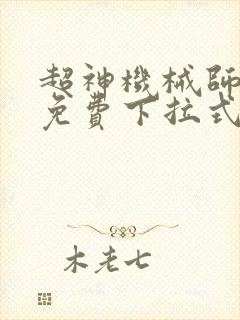 超神機械師
免費下拉式
木老七